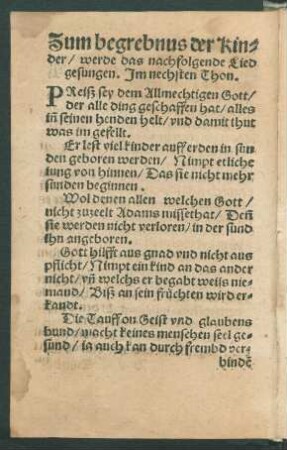 Zum begrebnus der Kin-
der / werde das nachfolgende Lied
gesungen. Im nechsten Thon.
PReiß sey dem Allmechtigen Gott /
der alle ding geschaffen hat / alles
iñ seinen henden helt / vnd damit thut
was im gefellt.
Er lest viel kinder auff erden in sün
den geboren werden / Nimpt etliche
iung von hinnen / Das sie nicht mehr
sünden beginnen.
Wol denen allen welchen Gott /
nicht zuzeelt Adams missethat / Deñ
sie werden nicht verloren / in der sünd
ihn angeboren.
Gott hilfft aus gnad vnd nicht aus
pflicht / Nimpt ein kind an das ander
nicht / vñ welchs er begabt weiis nie-
mand / Biß an sein früchten wird er-
kandt.
Die Tauff on Geist vnd glaubens
bund / macht keines menschen seel ge-
sund / ia auch kan durch frembd ver-
bindẽ